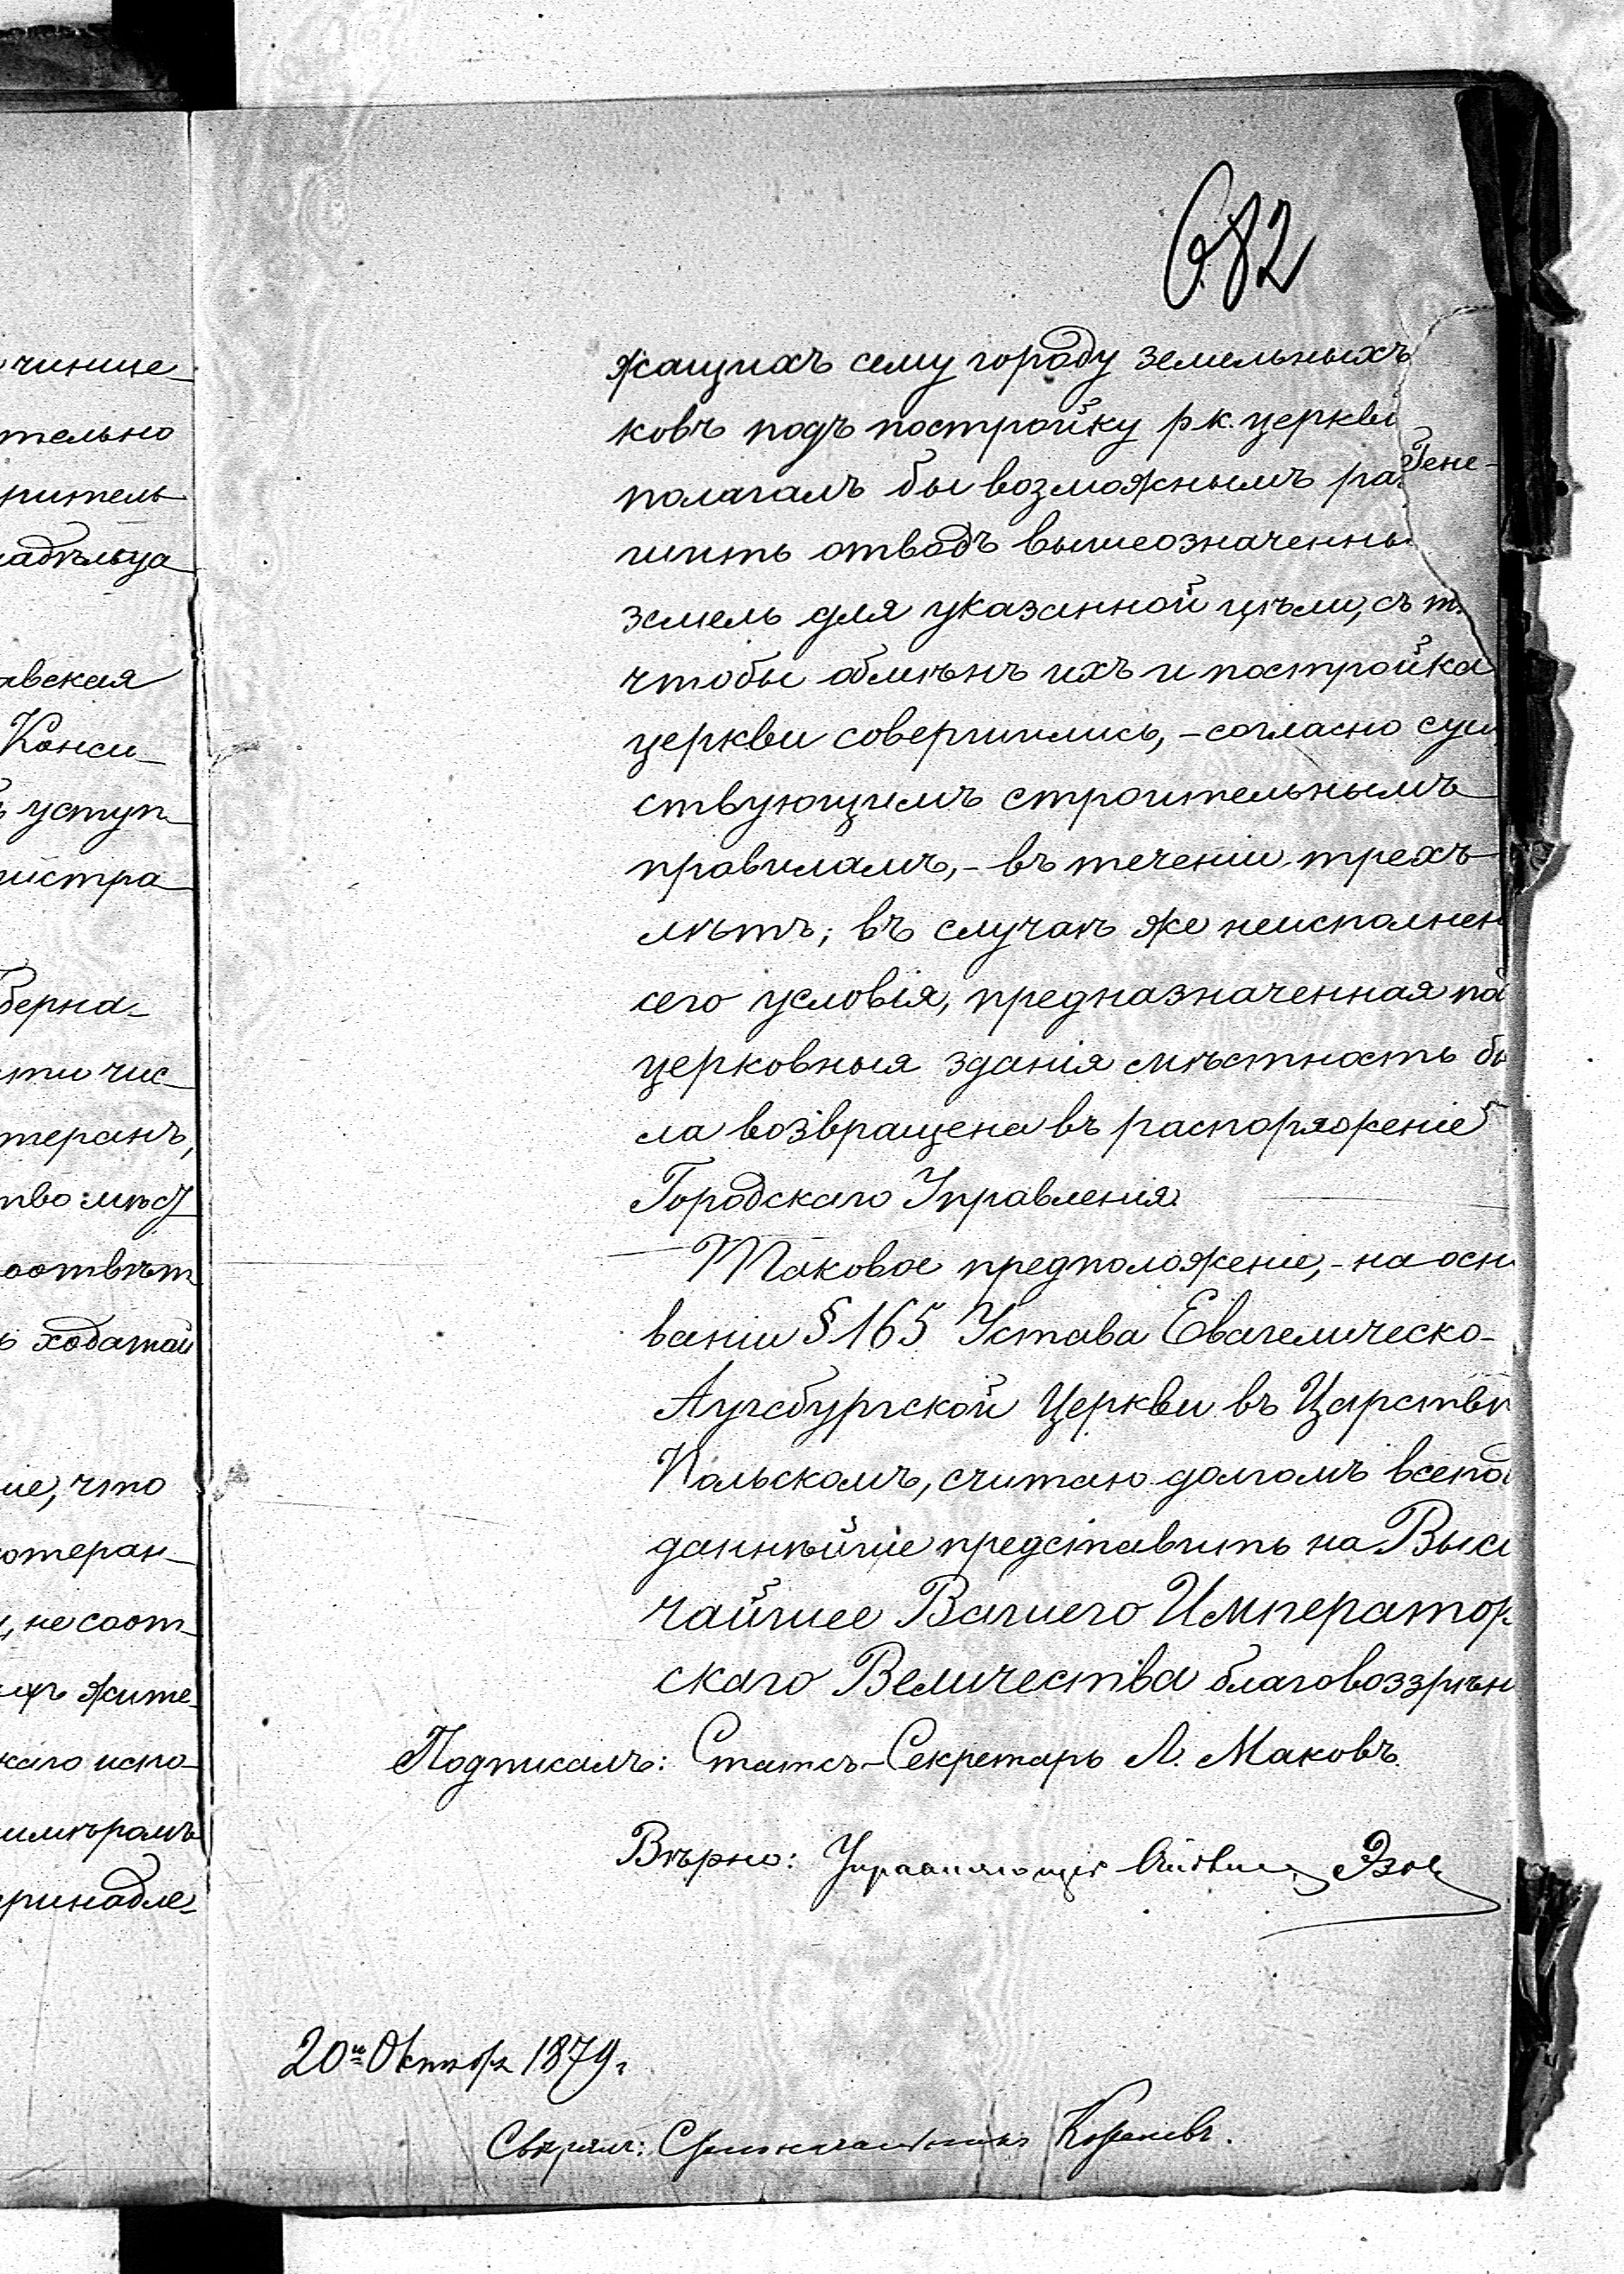 682
чинше
тельно
ритель
адѣльца
авская
Конси
уступ
истра
берна
сти чис
теранъ,
тво: мѣсд
оотвѣт
ходатай
ие, что
ютеран
не соот
ихъ жите
каго испо
имѣромъ
принадле
жащихъ сему городу земельныхъ
ковъ подъ постройку р к. церкви
полагалъ бы возможнымъ раз
гене-
шить отводъ вышеозначенны
земель для указанной цѣли, съ т.
чтобы обмѣнъ ихъ и постройка
церкви совершились, - согласно сущ
ствующимъ строительнымъ
правиламъ, - въ теченіи трехъ
лѣтъ; въ случаѣ же неисполнен
сего условія, предназначенная по
церковныя зданія мѣстность бы
ла возвращена въ распоряженіе
Городскаго Управленія.
Таковое предположеніе, - на осн
ваніи § 165 Устава Евагелическо-
Аугсбургской Церкви въ Царствѣ
Польскомъ, считаю долгомъ всепод
даннѣйше представить на Высо
чайшее Вашего Император
скаго Величества благовоззрѣн
Подписалъ: Статсъ-Секретарь Л. Маковъ.
Вѣрно: Управляющій
20го Октября 1879 г
Свѣрялъ: